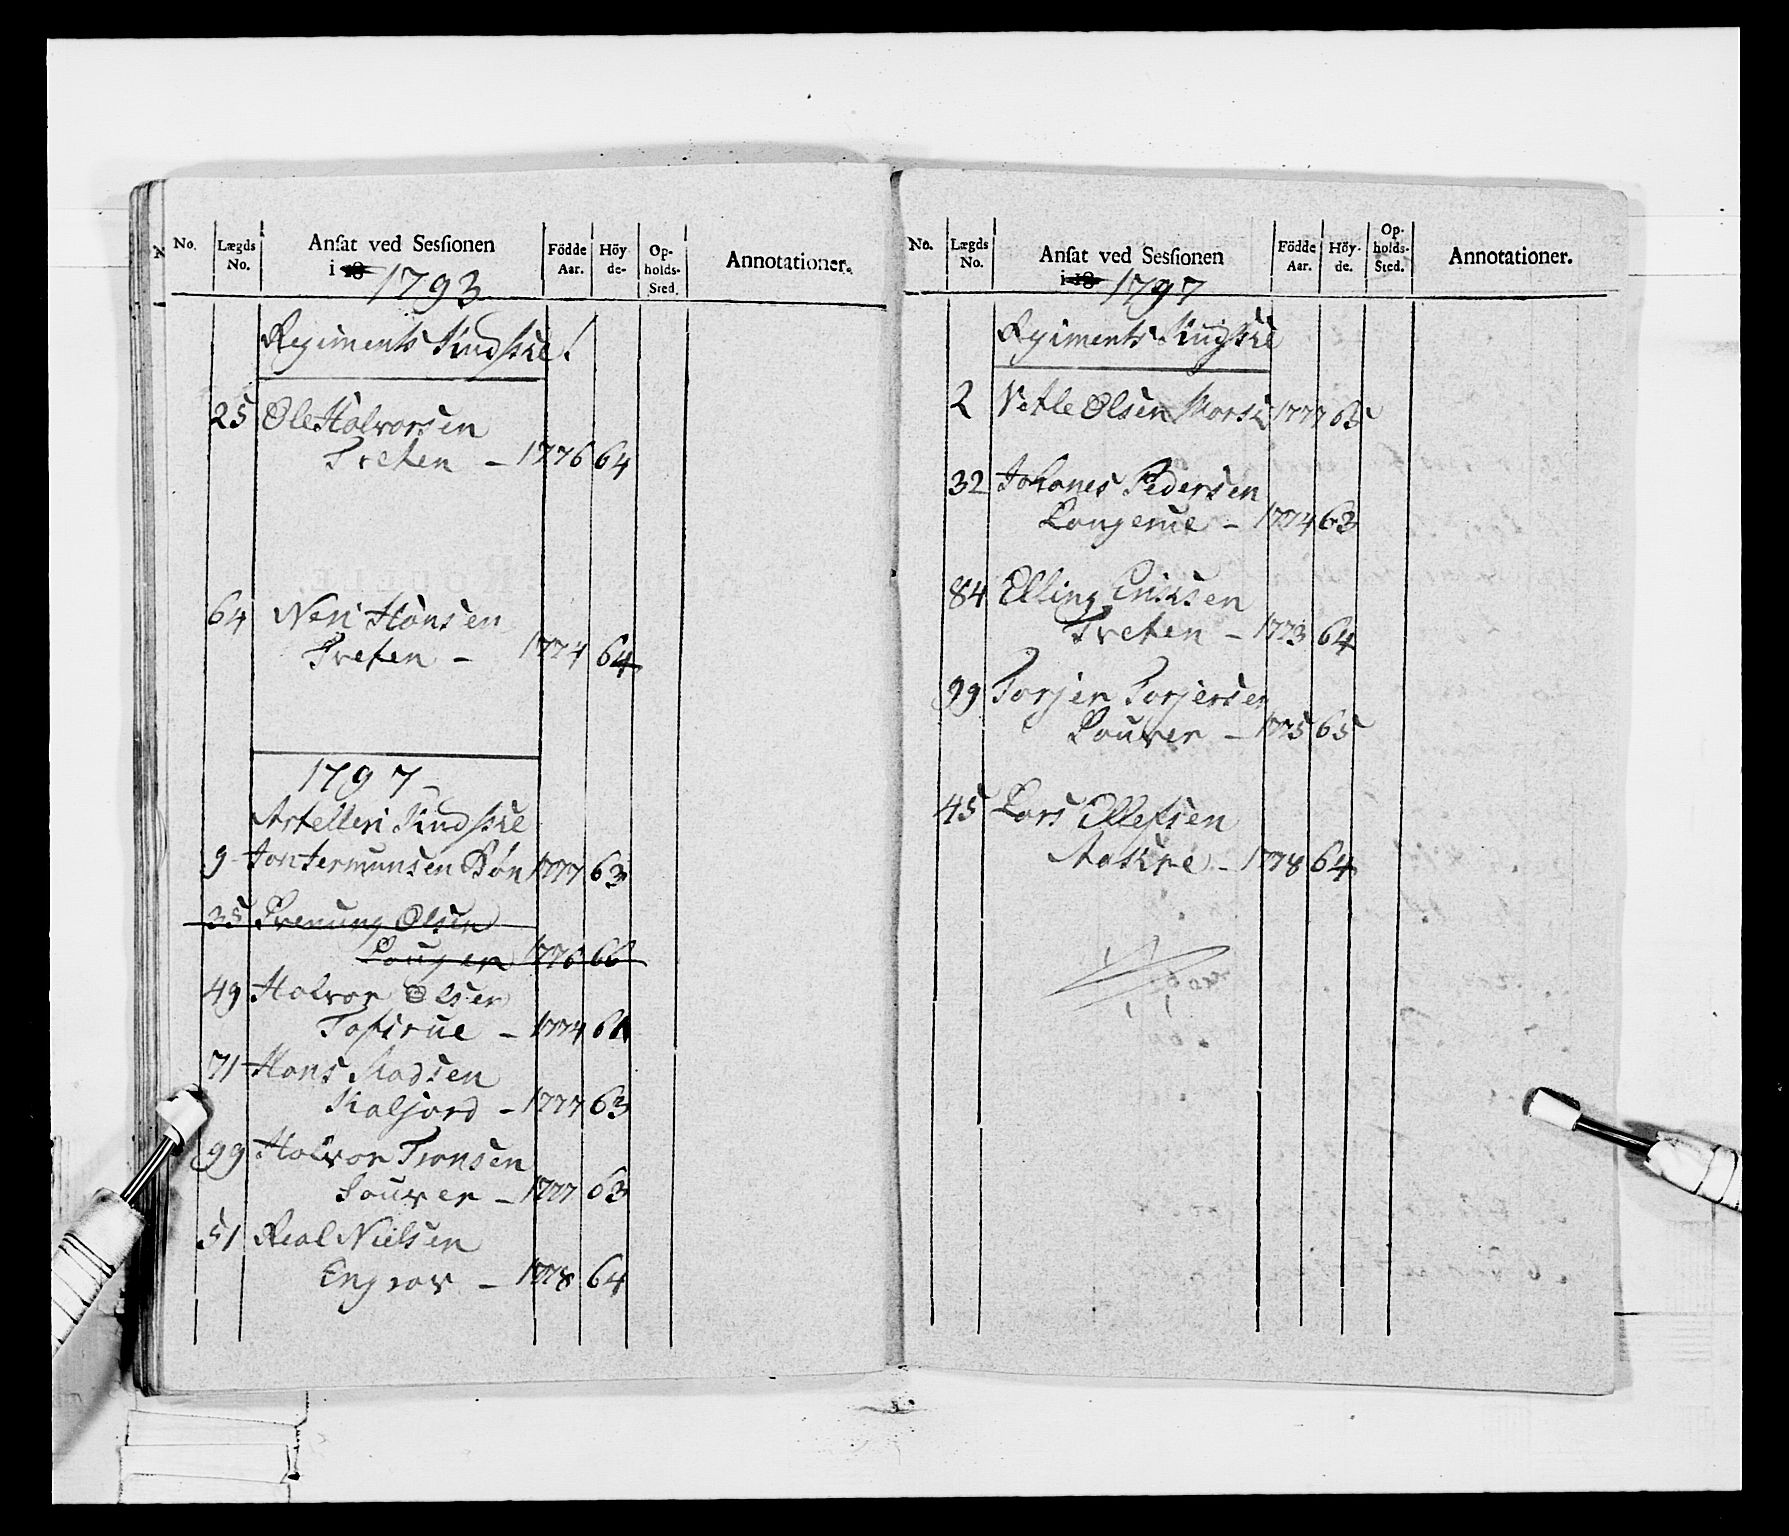 No.
Lægds No.
Ansat ved Sessionen i 18 1793
Födde Aar.
Höyde.
Opholds-Sted.
Annotationer.
Regiments
25 Ole Halvorsen
Treten – 1776 64
64 Neri Hansen
Treten – 1774 64
1797
Artelleri
9 Jon Bön 1777 63
35 Olsen
1776 66
49 Halvor Olsen
Toftrue – 1774
71 Hans Madsen
– 1777 63
99 Halvor Tronsen
– 1777 63
51 Nielsen
Engrav – 1778 64
No.
Lægds No.
Ansat ved Sessionen i 18 1797
Födde Aar.
Höyde.
Opholds-Sted.
Annotationer.
Regiments
2 Vetle Olsen 1777 65
32 Johanes Pedersen
Langerue – 1774 63
84 Elling Eriksen
Treten – 1773 64
99 Torjer Torjersen
– 1775 65
45 Lars Ellefsen
Aakre – 1778 64